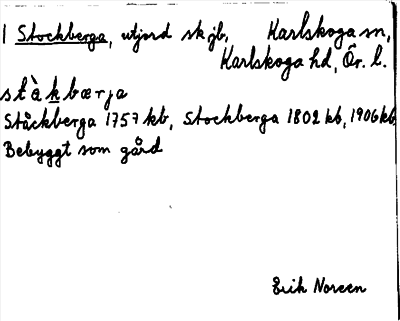 1 Stockberga, utjord sk jb, Karlskoga sn,
Karlskoga hd, Ör. l.
stàkbærja
Ståckberga 1757 kb, Stockberga 1802 kb, 1906 kb
Bebyggt som gård
Erik Noreen